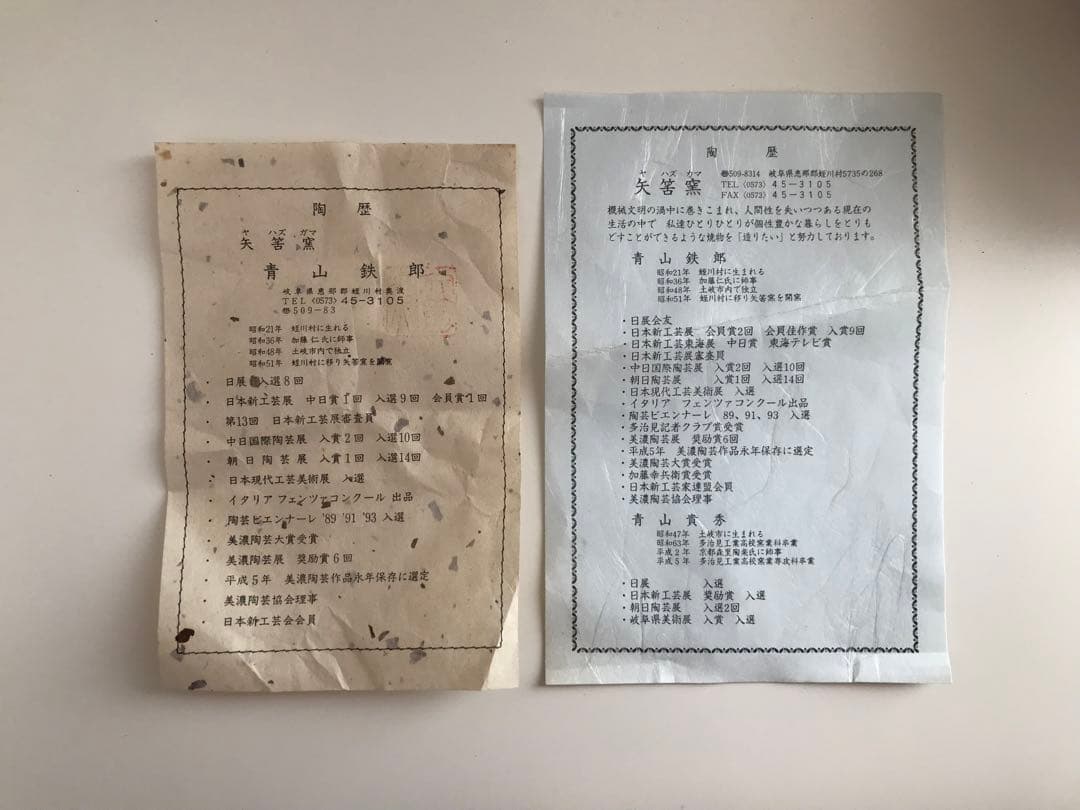 陶歴
ヤハズガマ
矢筈窯
青山鉄郎
岐阜県恵那郡蛭川村奥渡
TEL〈0573〉45-3105
〒509-83
昭和21年 蛭川村に生れる
昭和36年 加藤仁氏に師事
昭和48年 土岐市内で独立
昭和51年 蛭川村に移り矢筈窯を開窯
・日展 入選8回
・日本新工芸展 中日賞1回 入選9回 会員賞1回
・第13回 日本新工芸展審査員
・中日国際陶芸展 入賞2回 入選10回
・朝日陶芸展 入賞1回 入選14回
・日本現代工芸美術展 入選
・イタリア フェンツァコンクール 出品
・陶芸ビエンナーレ '89 '91 '93 入選
・美濃陶芸大賞受賞
・美濃陶芸展 奨励賞6回
・平成5年 美濃陶芸作品永年保存に選定
・美濃陶芸協会理事
・日本新工芸会会員
陶歴
ヤハズカマ
矢筈窯
〒509-8314 岐阜県恵那郡蛭川村5735の268
TEL〈0573〉45-3105
FAX〈0573〉45-3105
機械文明の渦中に巻きこまれ、人間性を失いつつある現在の
生活の中で 私達ひとりひとりが個性豊かな暮らしをとりも
どすことができるような焼物を「造りたい」と努力しております。
青山鉄郎
昭和21年 蛭川村に生まれる
昭和36年 加藤仁氏に師事
昭和48年 土岐市内で独立
昭和51年 蛭川村に移り矢筈窯を開窯
・日展会友
・日本新工芸展 会員賞2回 会員佳作賞 入賞9回
・日本新工芸東海展 中日賞 東海テレビ賞
・日本新工芸展審査員
・中日国際陶芸展 入賞2回 入選10回
・朝日陶芸展 入賞1回 入選14回
・日本現代工芸美術展 入選
・イタリア フェンツァコンクール出品
・陶芸ビエンナーレ 89、91、93 入選
・多治見記者クラブ賞受賞
・美濃陶芸展 奨励賞6回
・平成5年 美濃陶芸作品永年保存に選定
・美濃陶芸大賞受賞
・加藤幸兵衛賞受賞
・日本新工芸家連盟会員
・美濃陶芸協会理事
青山貴秀
昭和47年 土岐市に生まれる
昭和63年 多治見工業高校窯業科卒業
平成2年 京都森里陶楽氏に師事
平成5年 多治見工業高校窯業専攻科卒業
・日展 入選
・日本新工芸展 奨励賞 入選
・朝日陶芸展 入選2回
・岐阜県美術展 入賞 入選